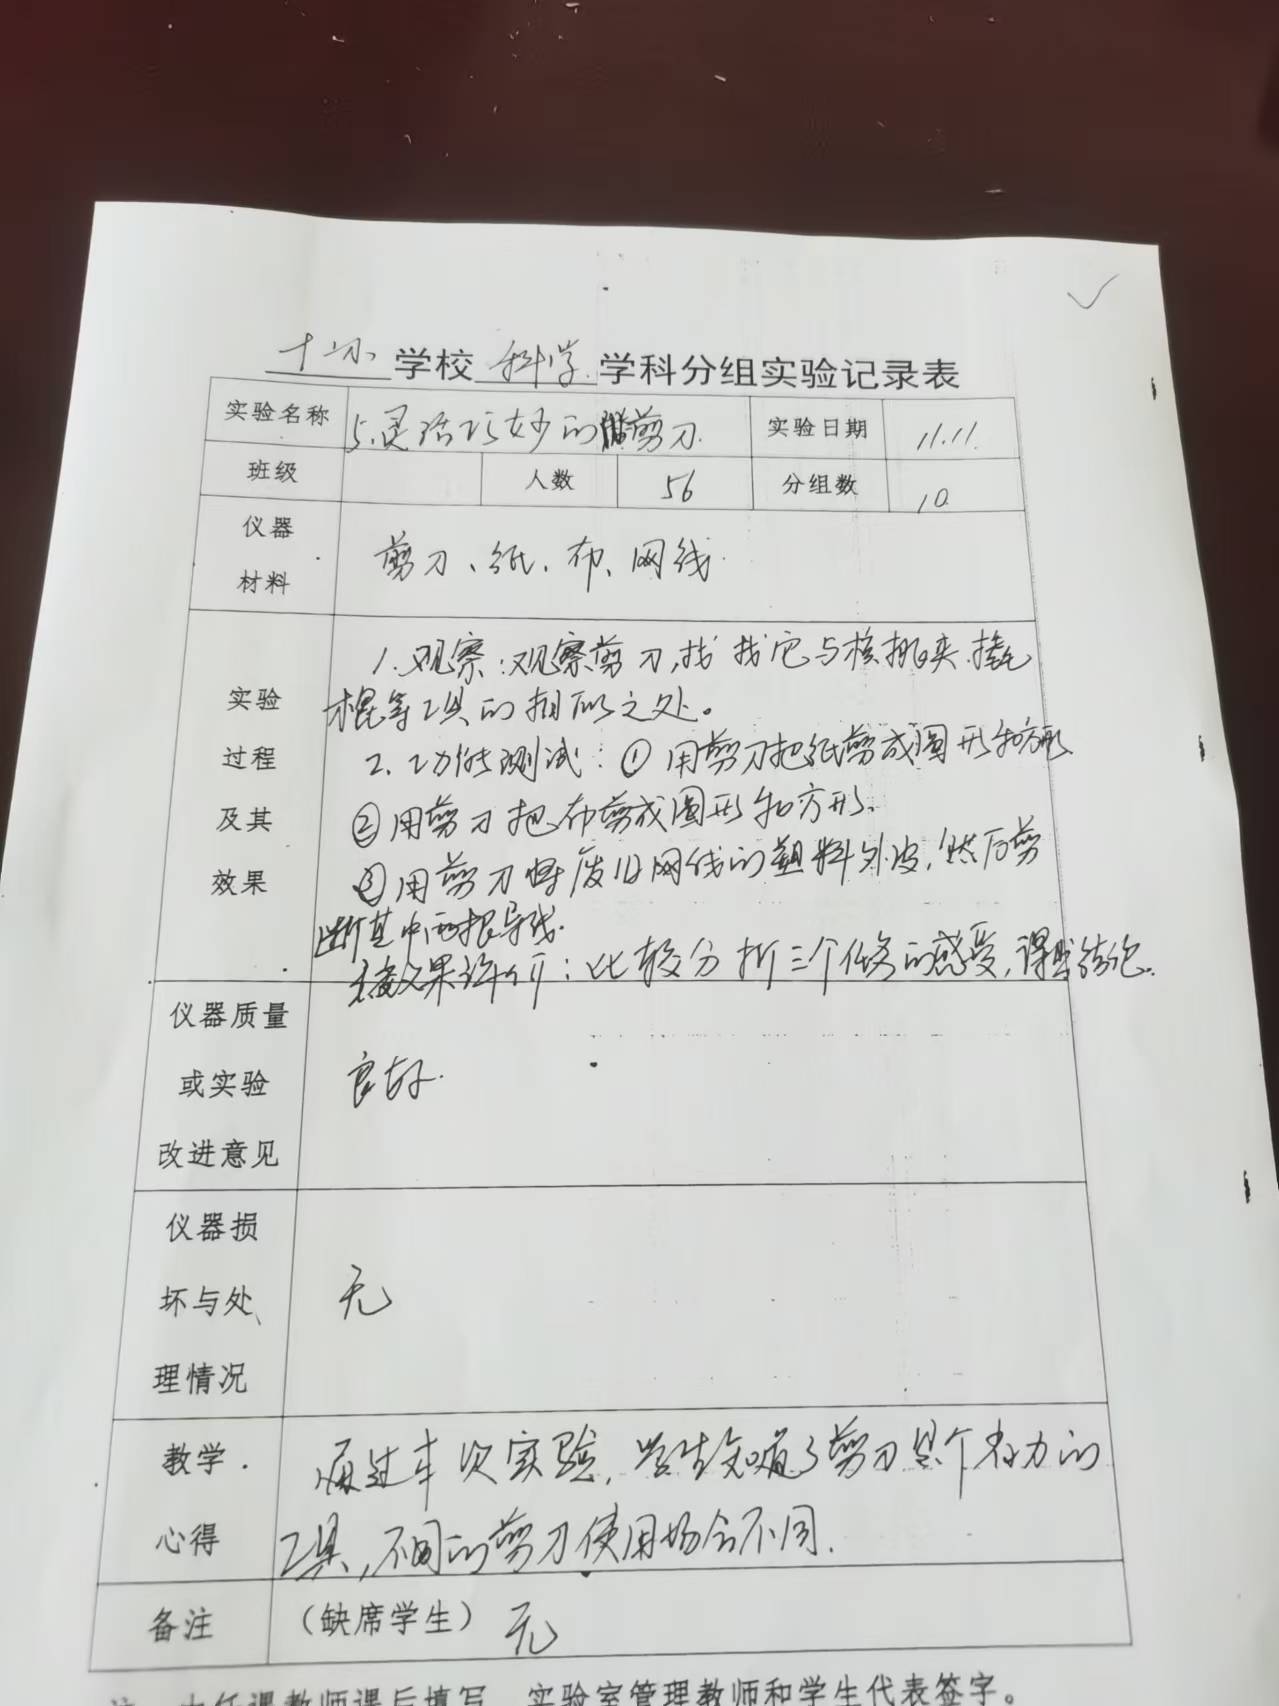 十小 学校 科学 学科分组实验记录表
实验名称 5.灵活巧妙的剪刀 实验日期 11.11.
班级 人数 56 分组数 10
仪器
材料
剪刀、纸、布、网线.
实验
过程
及其
效果
1.观察:观察剪刀,找找它与核桃夹.撬
棍等工具的相似之处。
2.功能测试:①用剪刀把纸剪成圆形和方形
②用剪刀把布剪成圆形和方形.
③用剪刀将废旧网线的塑料外皮,然后剪
断其中两根导线.
效果评价:比较分析三个任务的感受,得出结论.
仪器质量
或实验
改进意见
良好.
仪器损
坏与处
理情况
无
教学
心得
通过本次实验,学生知道了剪刀是个省力的
工具,不同的剪刀使用场合不同.
备注 (缺席学生) 无
注 任课教师课后填写 实验室管理教师和学生代表签字。